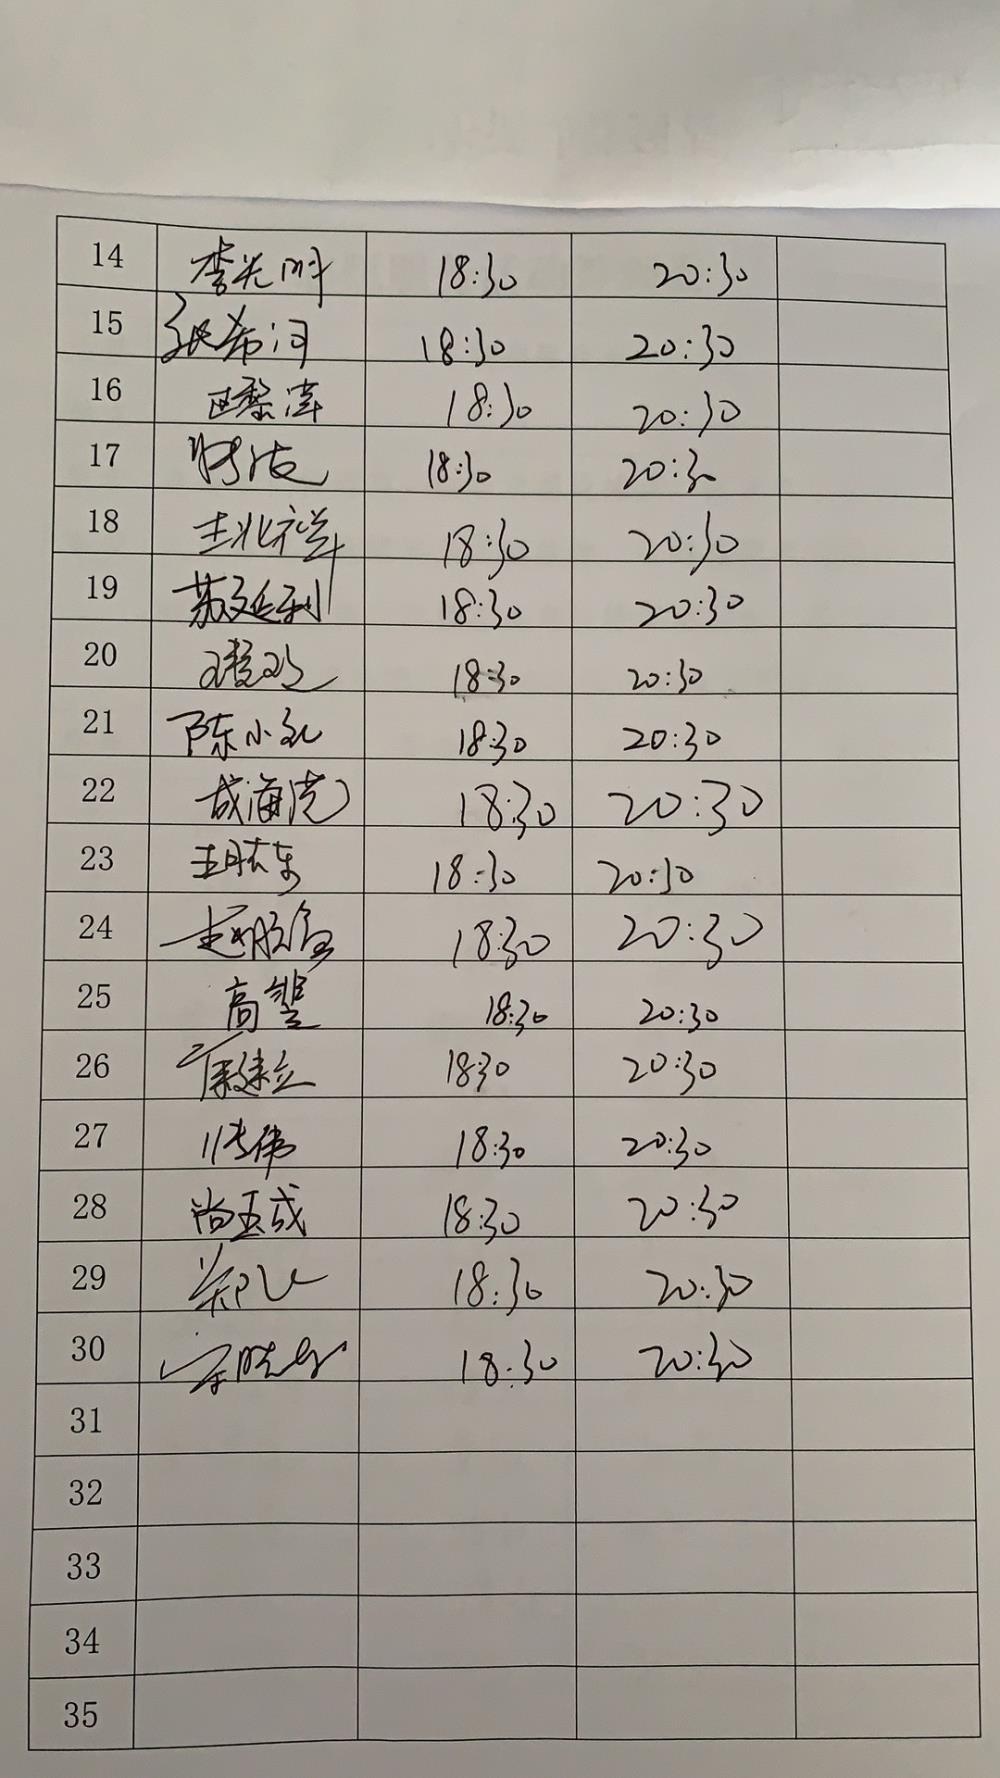 14 李光明 18:30 20:30
15 张希河 18:30 20:30
16 18:30 20:30
17 18:30 20:30
18 王兆祥 18:30 20:30
19 苏延利 18:30 20:30
20 18:30 20:30
21 陈小礼 18:30 20:30
22 成海滨 18:30 20:30
23 王胜东 18:30 20:30
24 18:30 20:30
25 高 18:30 20:30
26 康建立 18:30 20:30
27 张伟 18:30 20:30
28 尚玉成 18:30 20:30
29 郑飞 18:30 20:30
30 18:30 20:30
31
32
33
34
35